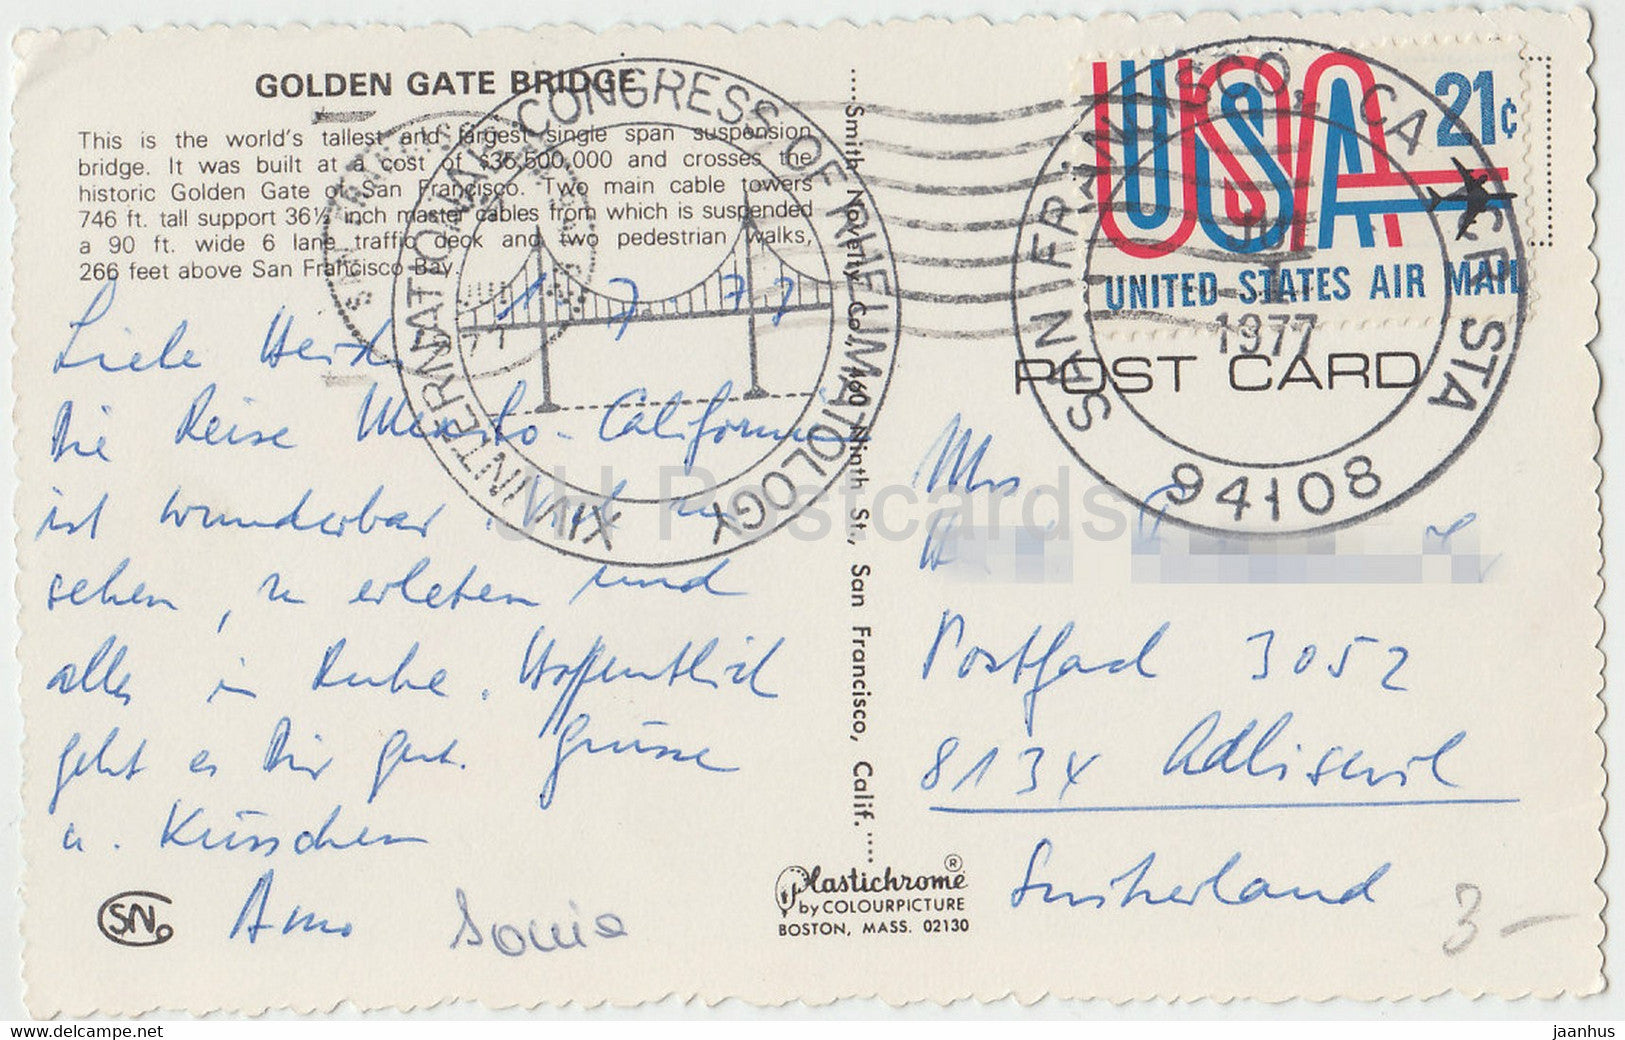 GOLDEN GATE BRIDGE
This is the world's tallest and largest single span suspension
bridge. It was built at a cost of $36,500,000 and crosses the
historic Golden Gate of San Francisco. Two main cable towers
746 ft. tall support 36½ inch master cables from which is suspended
a 90 ft. wide 6 lane traffic deck and two pedestrian walks,
266 feet above San Francisco Bay.
1 7 77
Liebe
Die Reise Mexiko - Californien
ist wunderbar. Viel zu
sehen, zu erleben und
alles in Ruhe. Hoffentlich
geht es Dir gut. Grüsse
u. Küsschen
Arno Sonia
SN
XIV INTERNATIONAL CONGRESS OF RHEUMATOLOGY
....Smith Novelty Co., 460 Ninth St., San Francisco, Calif.....
Plastichrome®
by COLOURPICTURE
BOSTON, MASS. 02130
USA 21¢
UNITED STATES AIR MAIL
SAN FRANCISCO, CA STA
JUL
1
1977
94108
POST CARD
Mrs
Postfach 3052
8134 Adliswil
Switzerland
3-
JH Postcards
www.delcampe.net
jaanhus